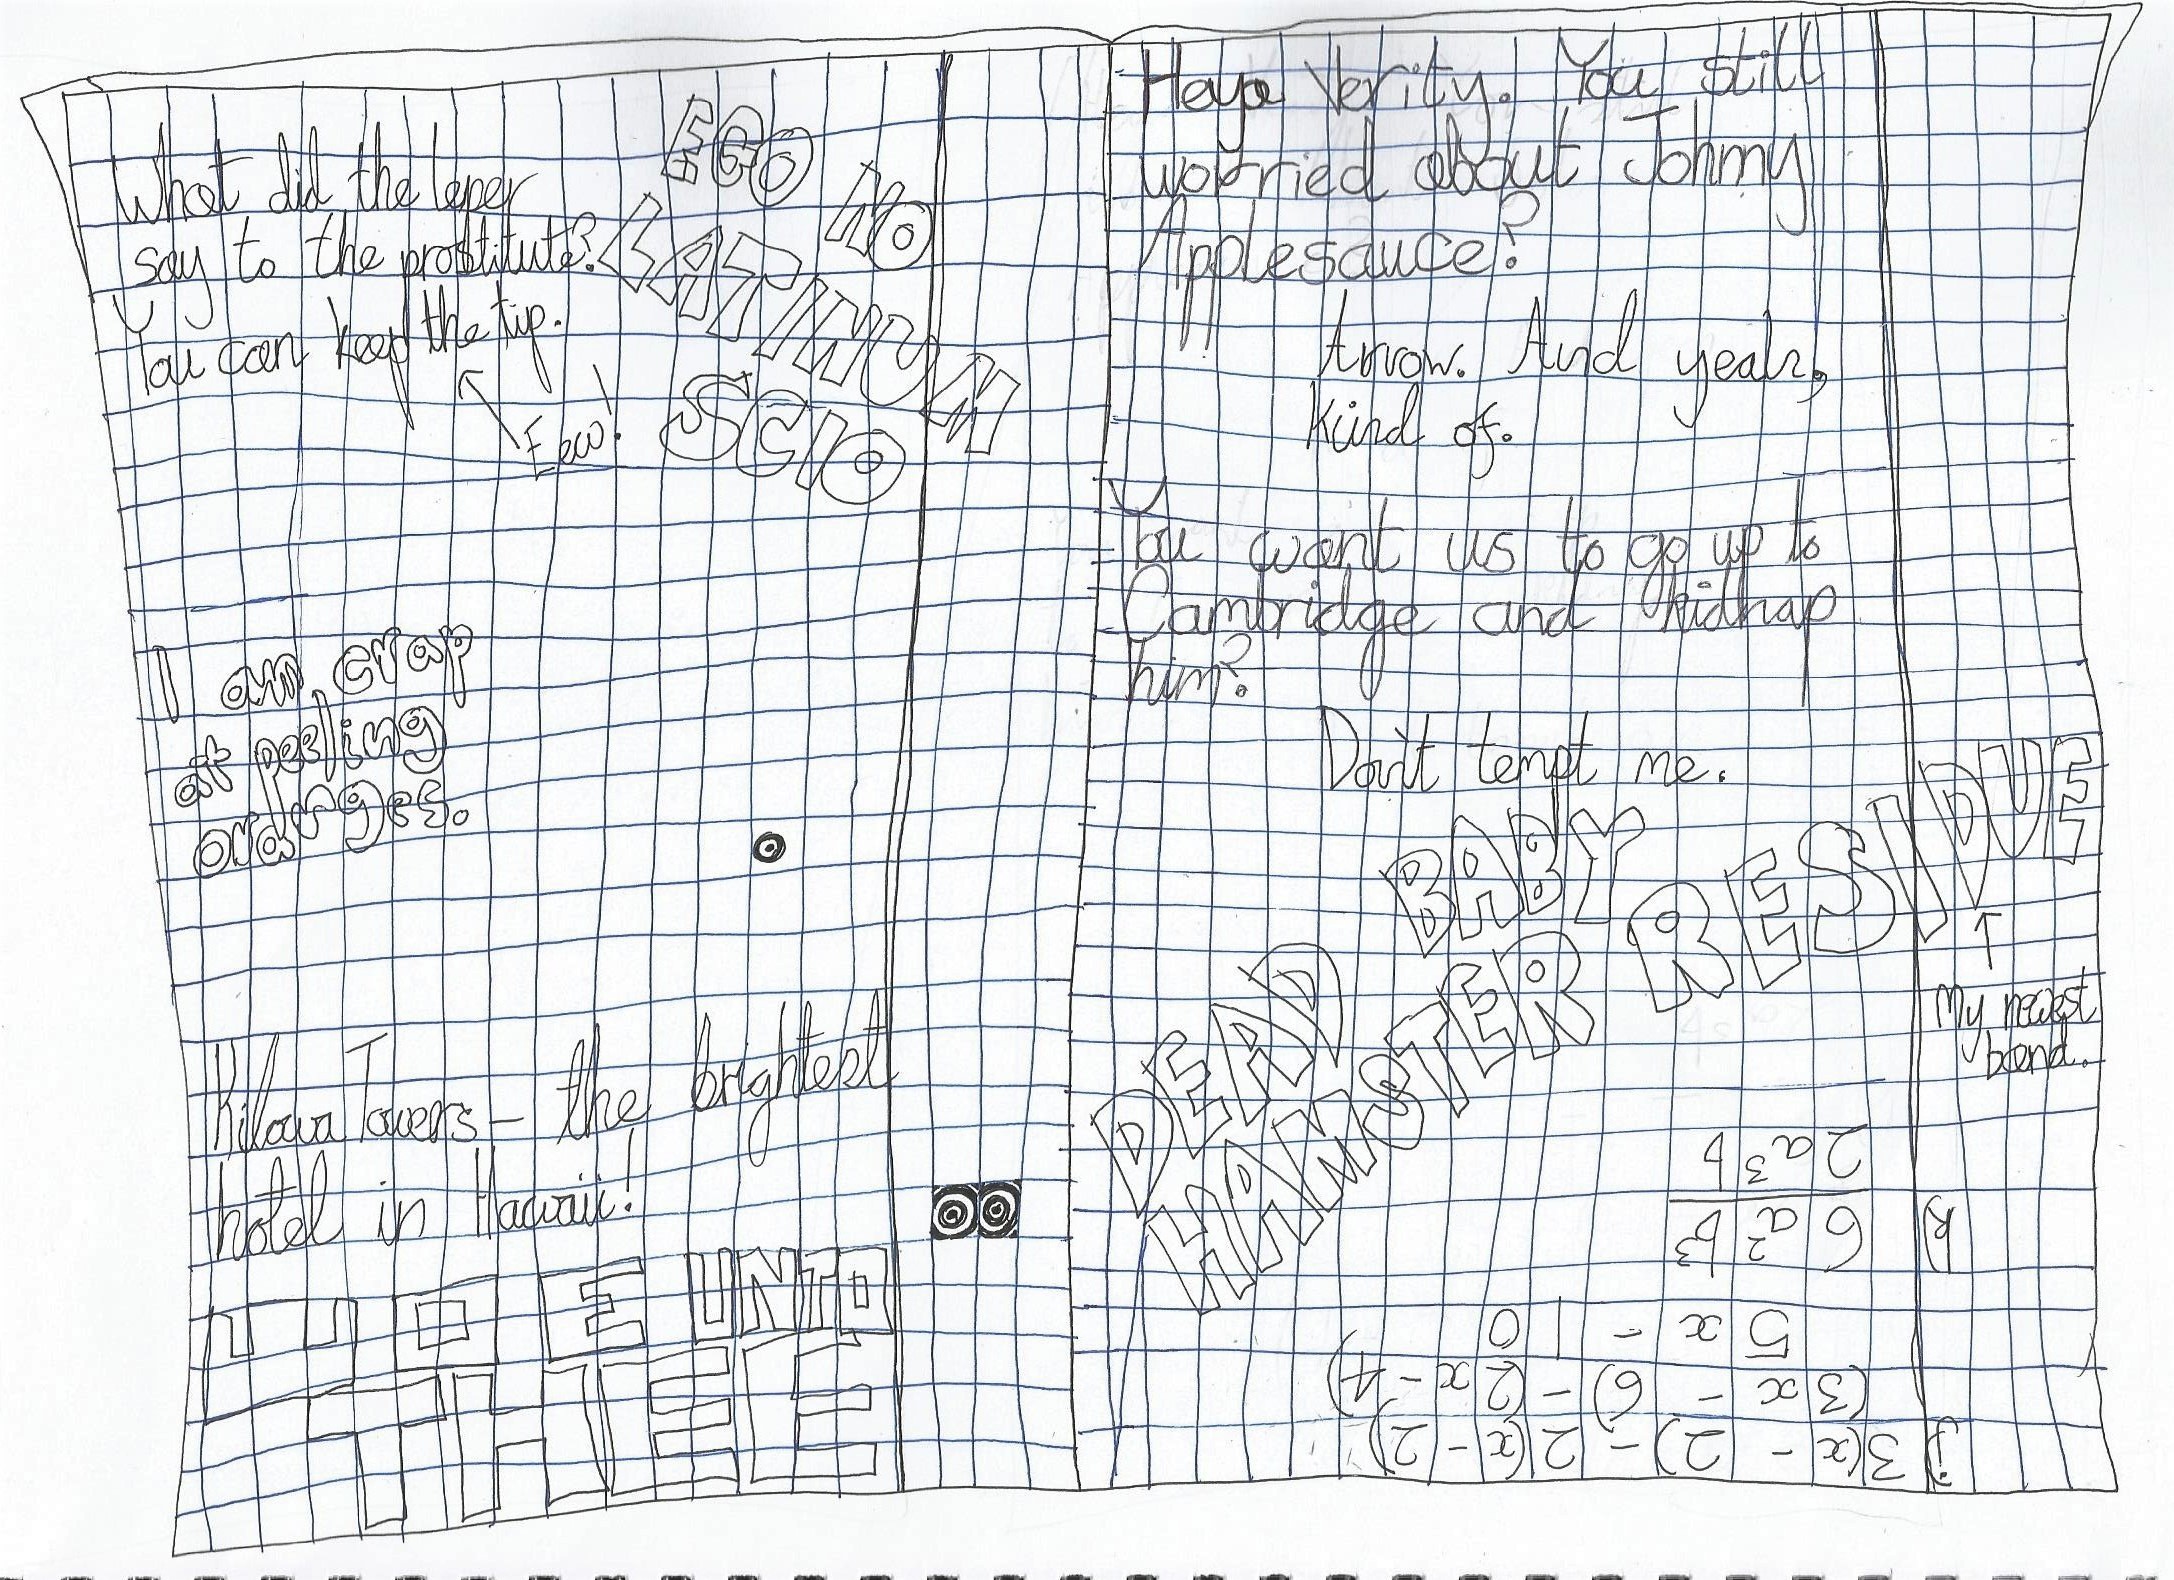 What did the leper
say to the prostitute?
You can keep the tip.
Eew!
EGO NO
LATINUM
SCIO
I am crap
at peeling
oranges.
Kilaua Towers – the brightest
hotel in Hawaii!
WOE UNTO
THEE
Heya Verity. You still
worried about Johnny
Applesauce?
Arrow. And yeah,
kind of.
You want us to go up to
Cambridge and kidnap
him?
Don't tempt me.
DEAD BABY
HAMSTER RESIDUE
My newest
band.
j) 3(x - 2) - 2(x - 2)
(3x - 6) - (2x - 4)
5x - 10
k) 6a²b³
2a³b